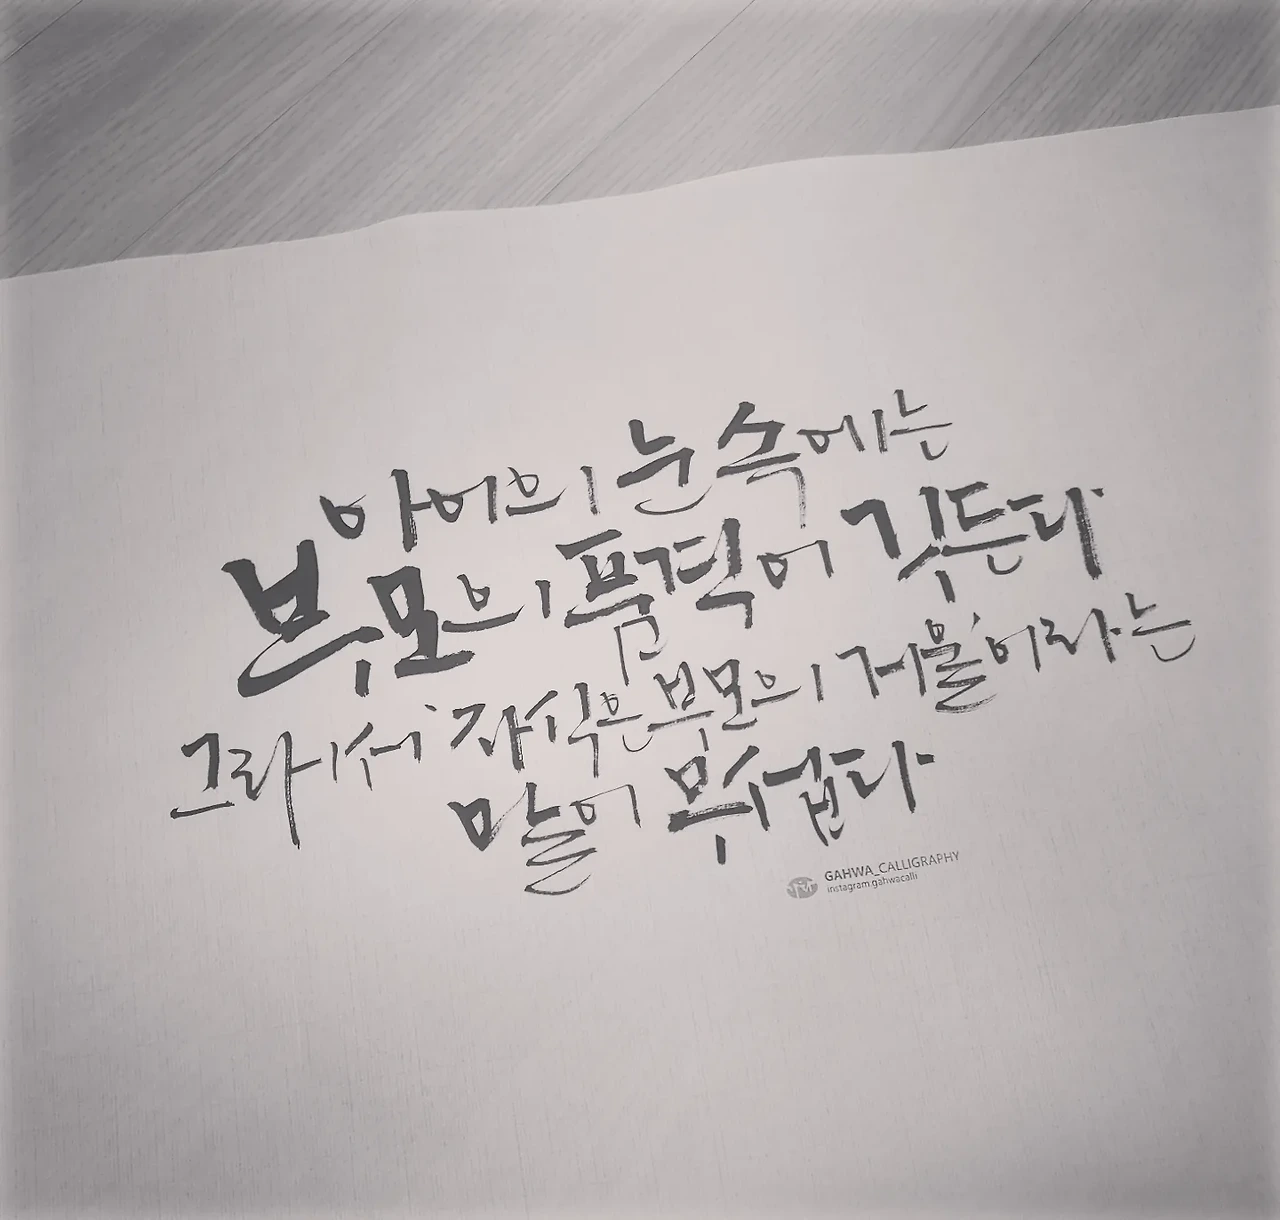 아이의 눈 속에는
부모의 품격이 깃든다
그래서 자식은 부모의 거울이라는
말이 무섭다
GAHWA_CALLIGRAPHY
instagram.gahwacalli